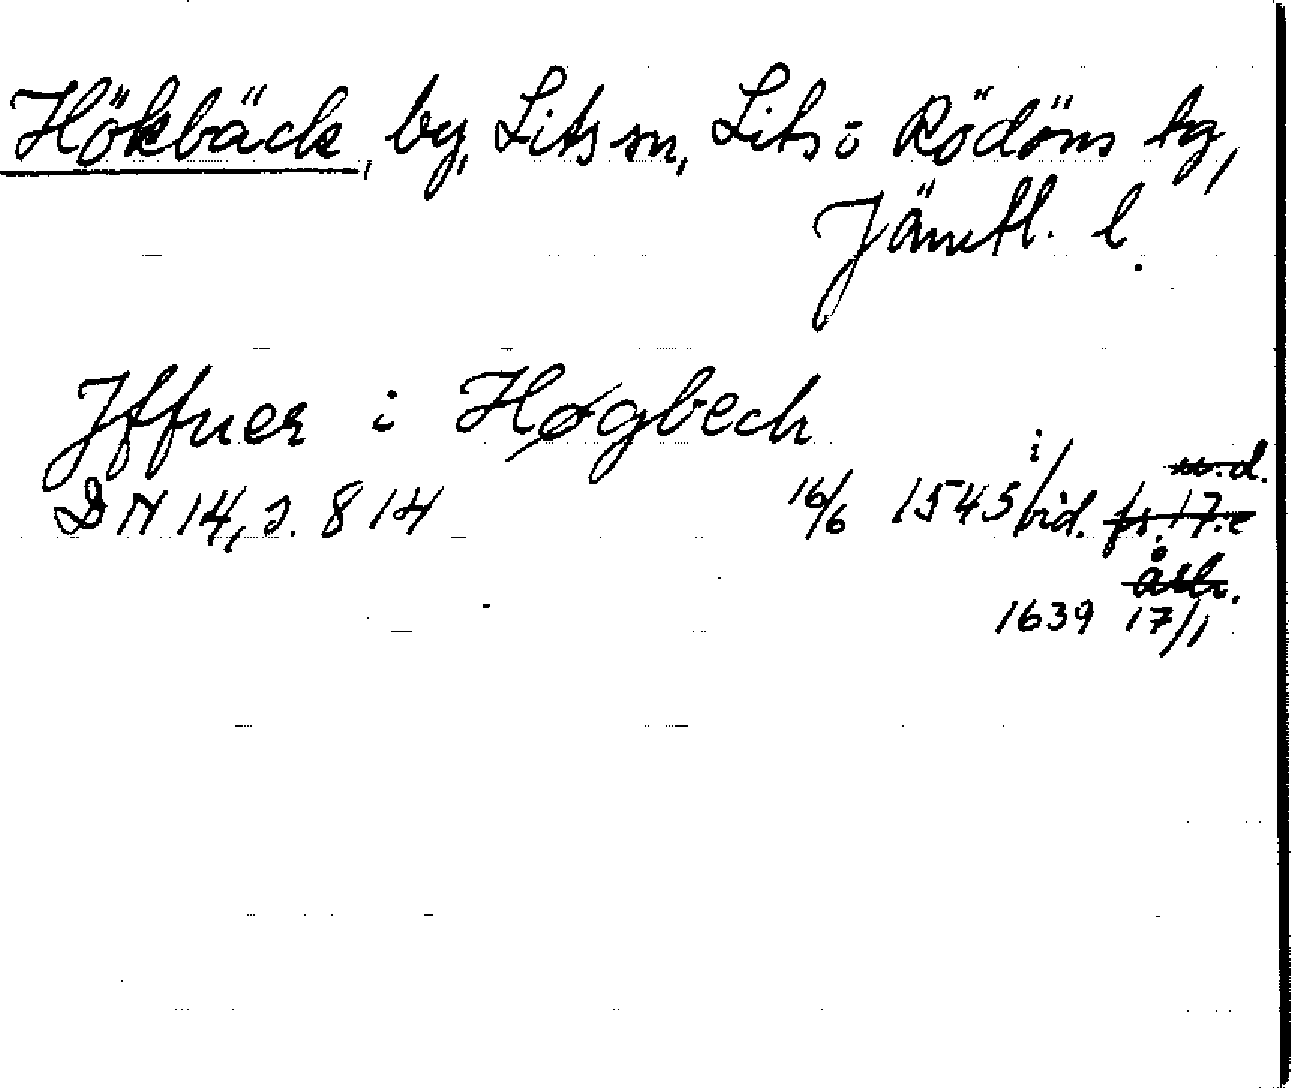 Hökbäck, by, Lits sn, Lits o Rödöns tg,
Jämtl. l.
Jffuer i Høgbech
DN 14, s. 814 16/6 1545 i vid. fr. 17.e
årh.
1639 17/1